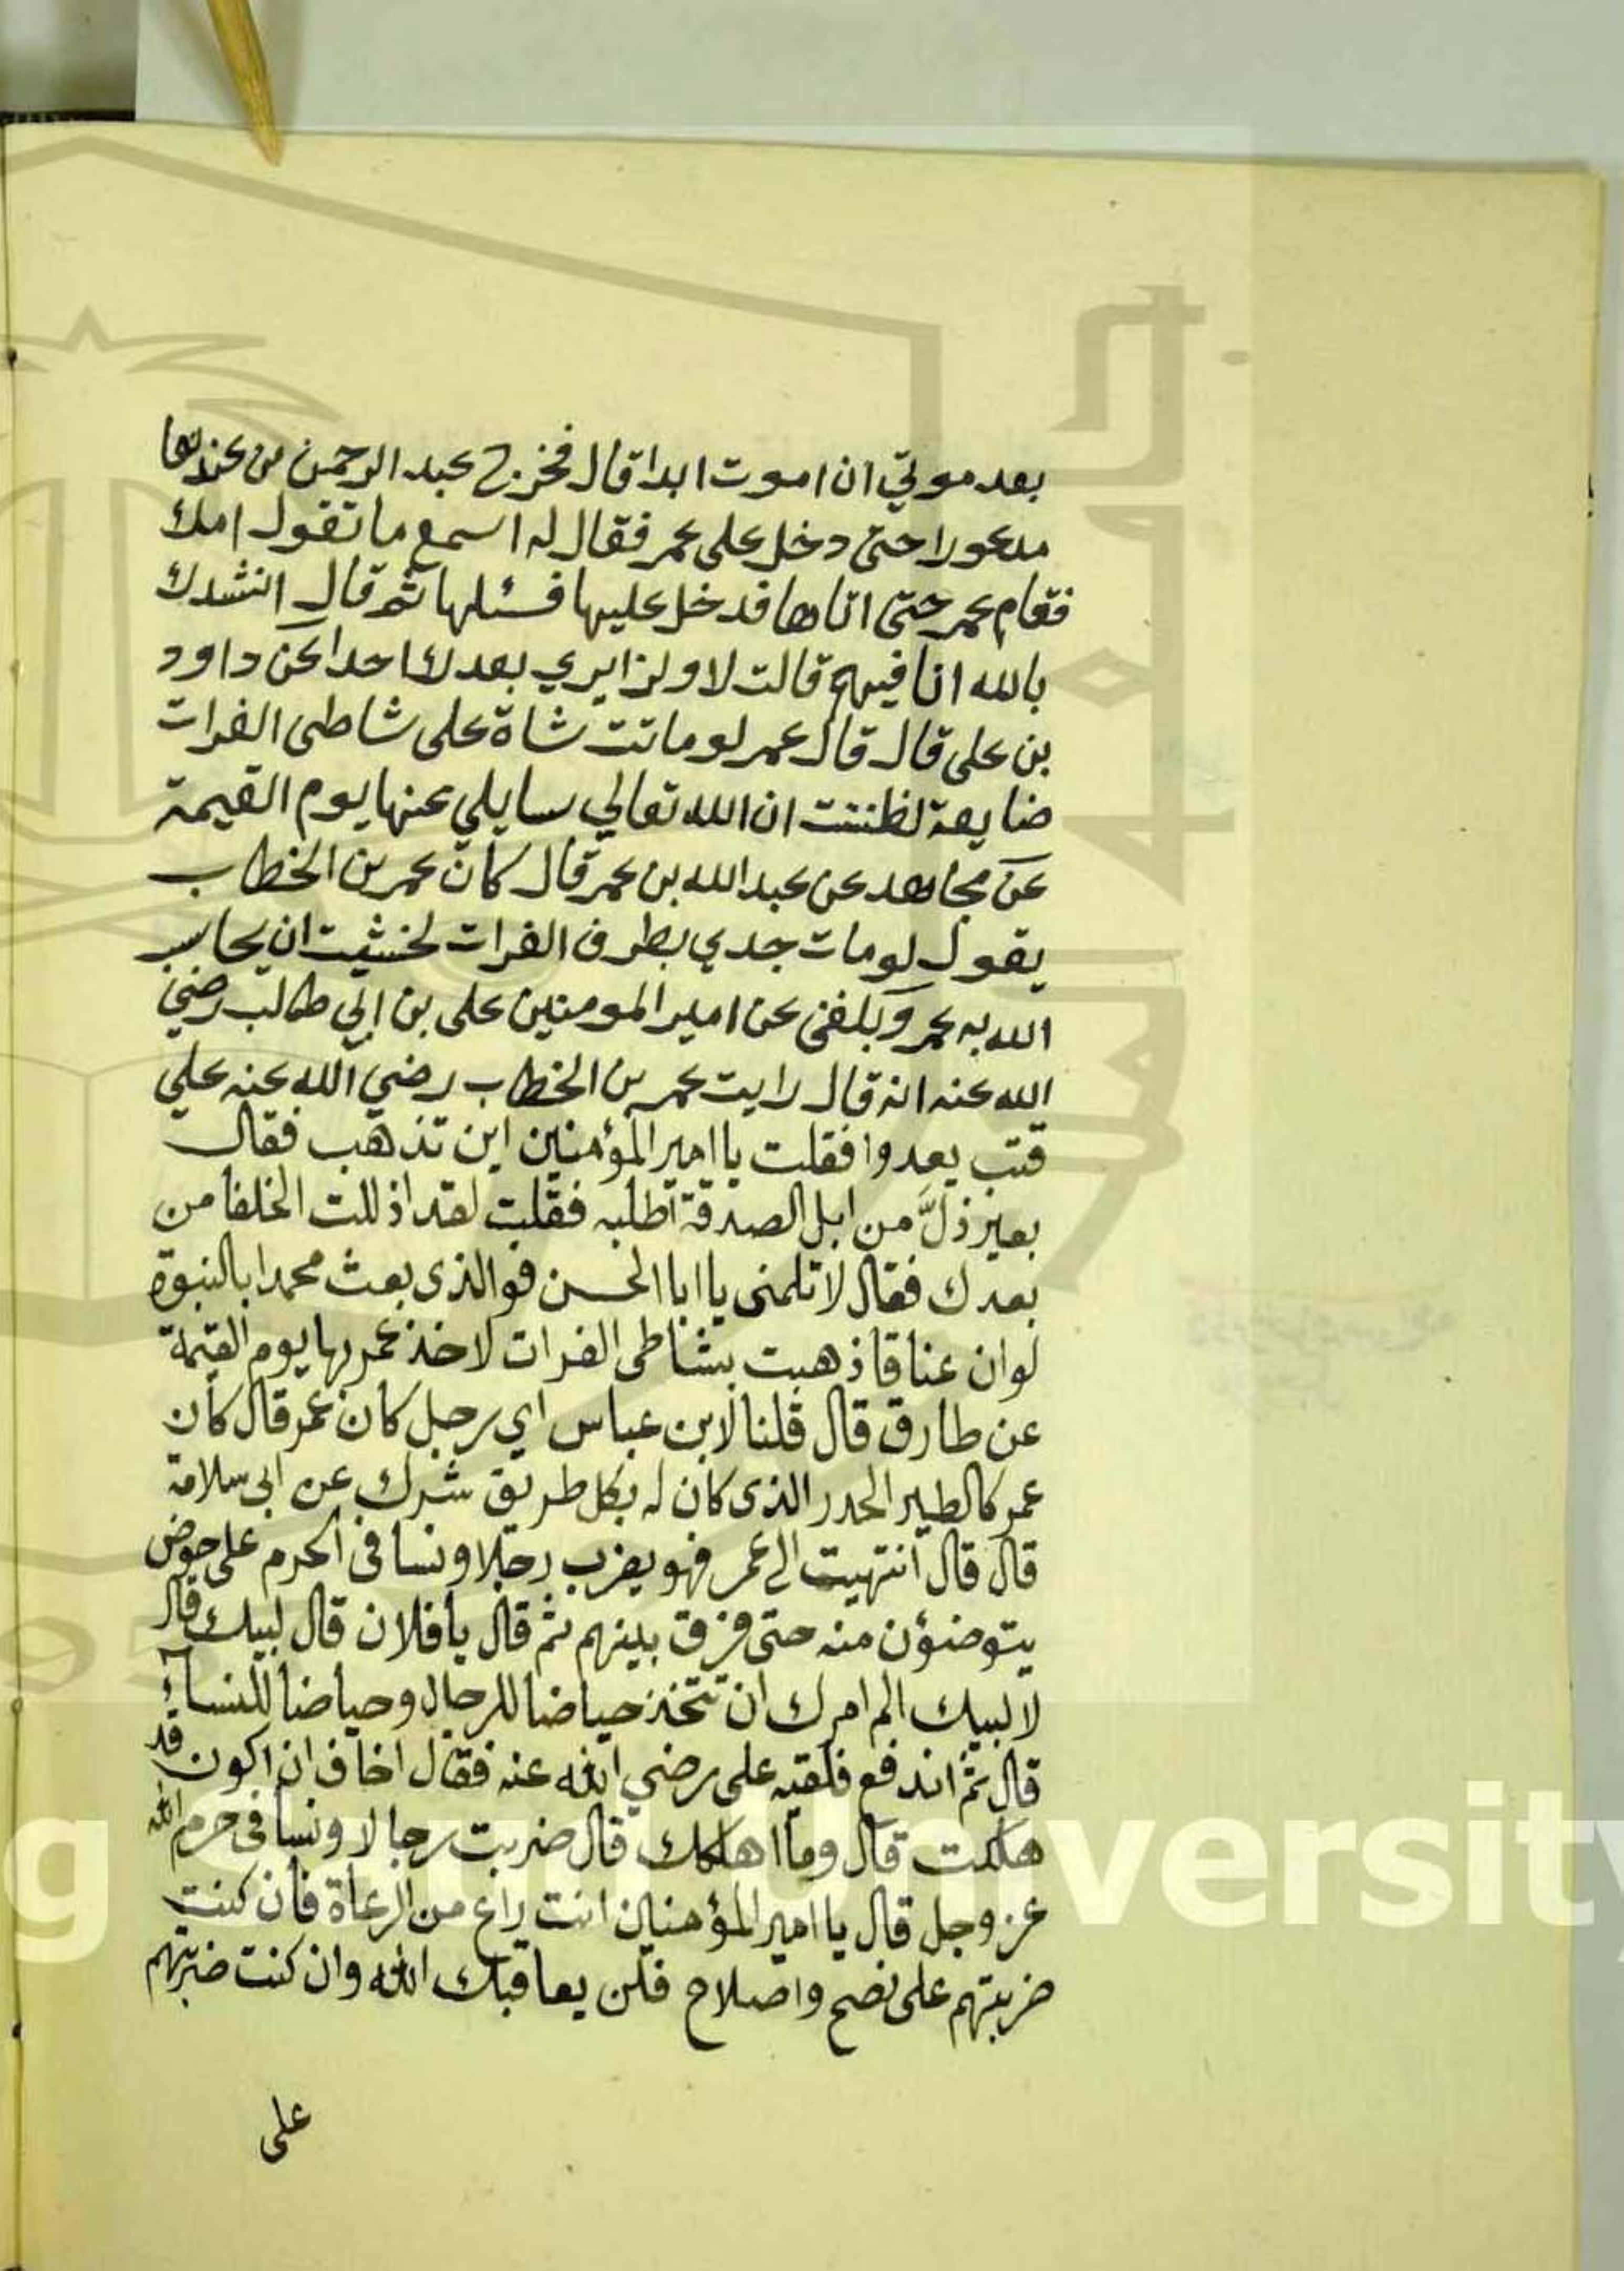 بعد موتي ان اموت ابدا قال فخرج عبد الرحمن من عندها
مدعورا حتى دخل على عمر فقال له اسمع ما تقول امك
فقام عمر حتى اتاها فدخل عليها فسئلها ثم قال انشدك
بالله انا فيهم قالت لا ولن ابري بعدك احدا عن داود
بن على قال قال عمر لو ماتت شاة على شاطى الفرات
ضايعة لظننت ان الله تعالي سايلي عنها يوم القيمة
عن مجاهد عن عبد الله بن عمر قال كان عمر بن الخطاب
يقول لو مات جدي بطرف الفرات لخشيت ان يحاسب
الله به عمر وبلغنى عن امير المومنين على بن ابي طالب رضي
الله عنه انه قال رايت عمر بن الخطاب رضي الله عنه علي
قتب يعدوا فقلت يا امير المؤمنين اين تذهب فقال
بعير ذلّ من ابل الصدقة اطلبه فقلت لقد اذللت الخلفا من
بعدك فقال لا تلمنى يا ابا الحسن فو الذى بعث محمدا بالنبوة
لو ان عناقا ذهبت بشاطى الفرات لاخذ عمر بها يوم القيمة
عن طارق قال قلنا لابن عباس اي رجل كان عمر قال كان
عمر كالطير الحدر الذى كان له بكل طريق شرك عن ابى سلامة
قال قال انتهيت الى عمر فهو يضرب رجالا ونسا فى الحرم على حوض
يتوضؤن منه حتى فرق بينهم ثم قال يا فلان قال لبيك قال
لا لبيك الم امرك ان تتخذ حياضا للرجال وحياضا للنساء
قال ثم اندفع فلقيه على رضي الله عنه فقال اخاف ان اكون قد
هلكت قال وما اهلكك قال ضربت رجالا ونسا فى حرم الله
عز وجل قال يا امير المؤمنين انت راع من الرعاة فان كنت
ضربتهم على نصح واصلاح فلن يعاقبك الله وان كنت ضربتهم
على
g Saud University